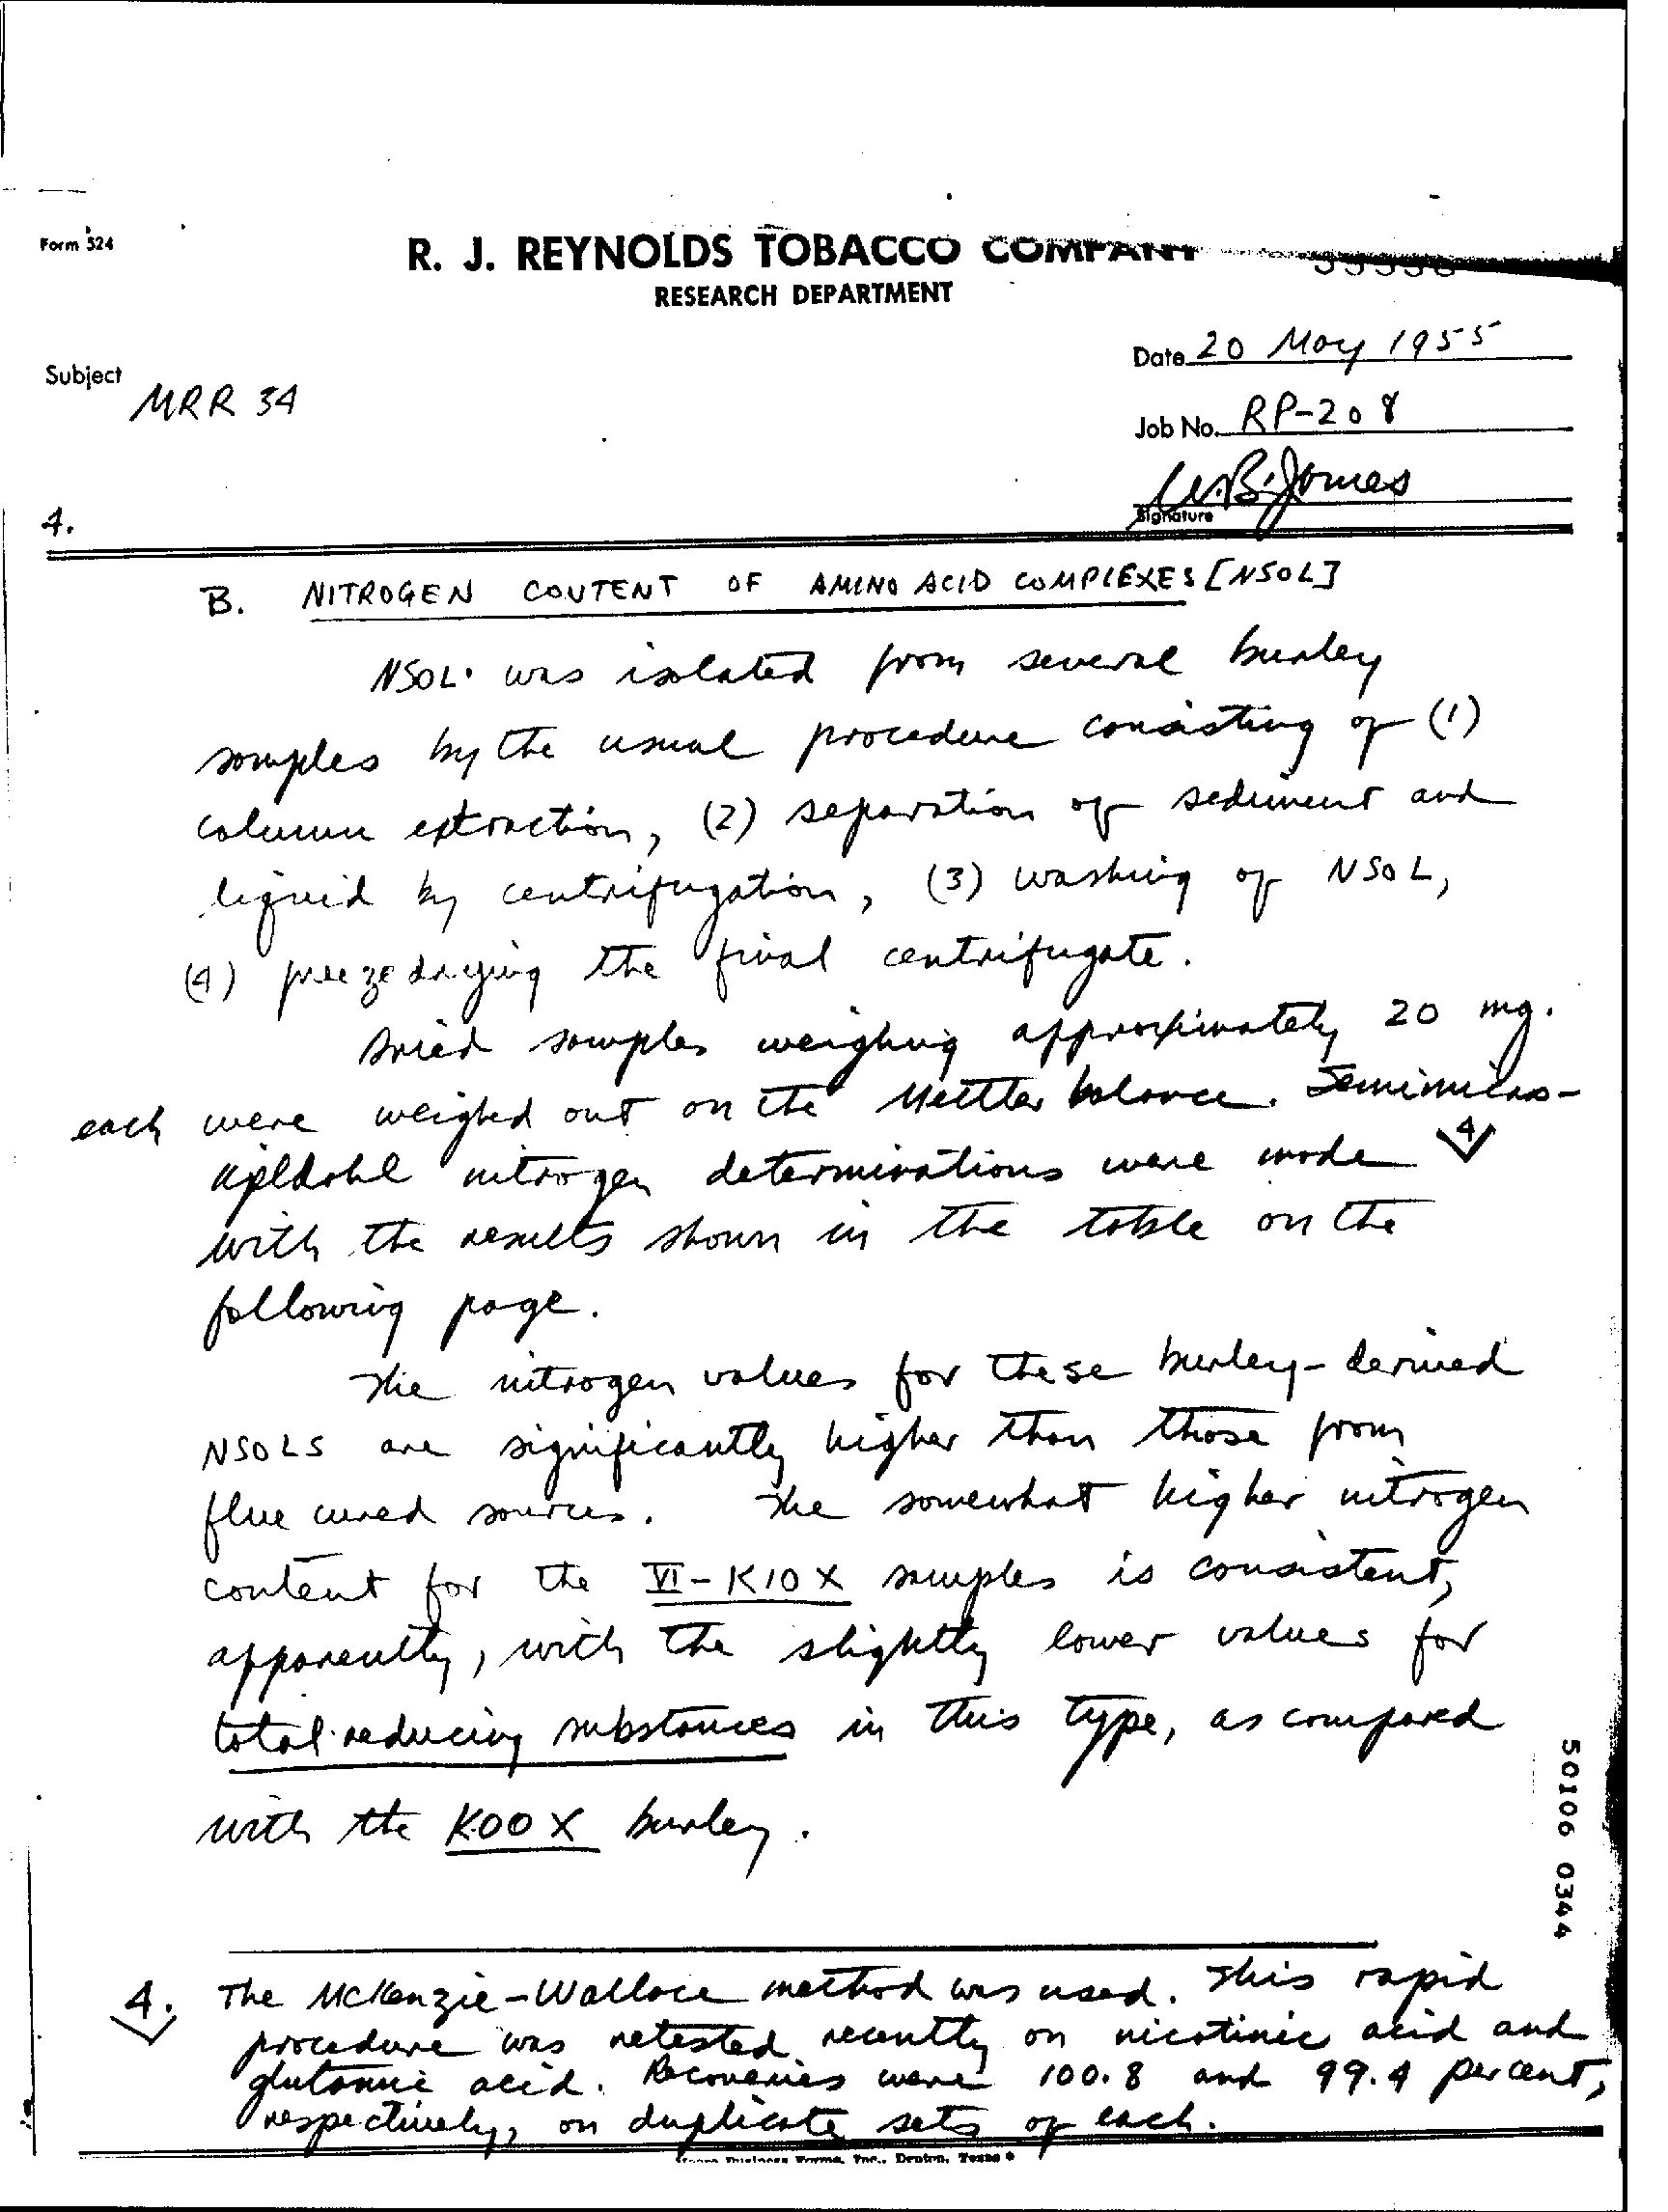 Form 524
R. J. REYNOLDS TOBACCO COMPANY
RESEARCH DEPARTMENT
Date 20 May 1955
Subject
MRR 34
Job No. RP-208
W.B. Jones
Signature
4.
B. NITROGEN CONTENT OF AMINO ACID COMPLEXES [NSOL]
NSOL was isolated from several burley
samples by the usual procedure consisting of (1)
column extraction, (2) separation of sediment and
liquid by centrifugation, (3) washing of NSOL,
(4) freeze drying the final centrifugate.
Dried samples weighing approximately 20 mg.
each were weighed out on the Mettler balance. Semimicro-
kjeldahl nitrogen determinations were made 4
with the results shown in the table on the
following page.
The nitrogen values for these burley-derived
NSOLS are significantly higher than those from
flue cured sources. The somewhat higher nitrogen
content for the VI-K10X samples is consistent,
apparently, with the slightly lower values for
total reducing substances in this type, as compared
with the KOOX burley.
50106 0344
4. The McKenzie-Wallace method was used. This rapid
procedure was retested recently on nicotinic acid and
glutamic acid. Recoveries were 100.8 and 99.4 percent,
respectively, on duplicate sets of each.
Business Forms, Inc., Denton, Texas